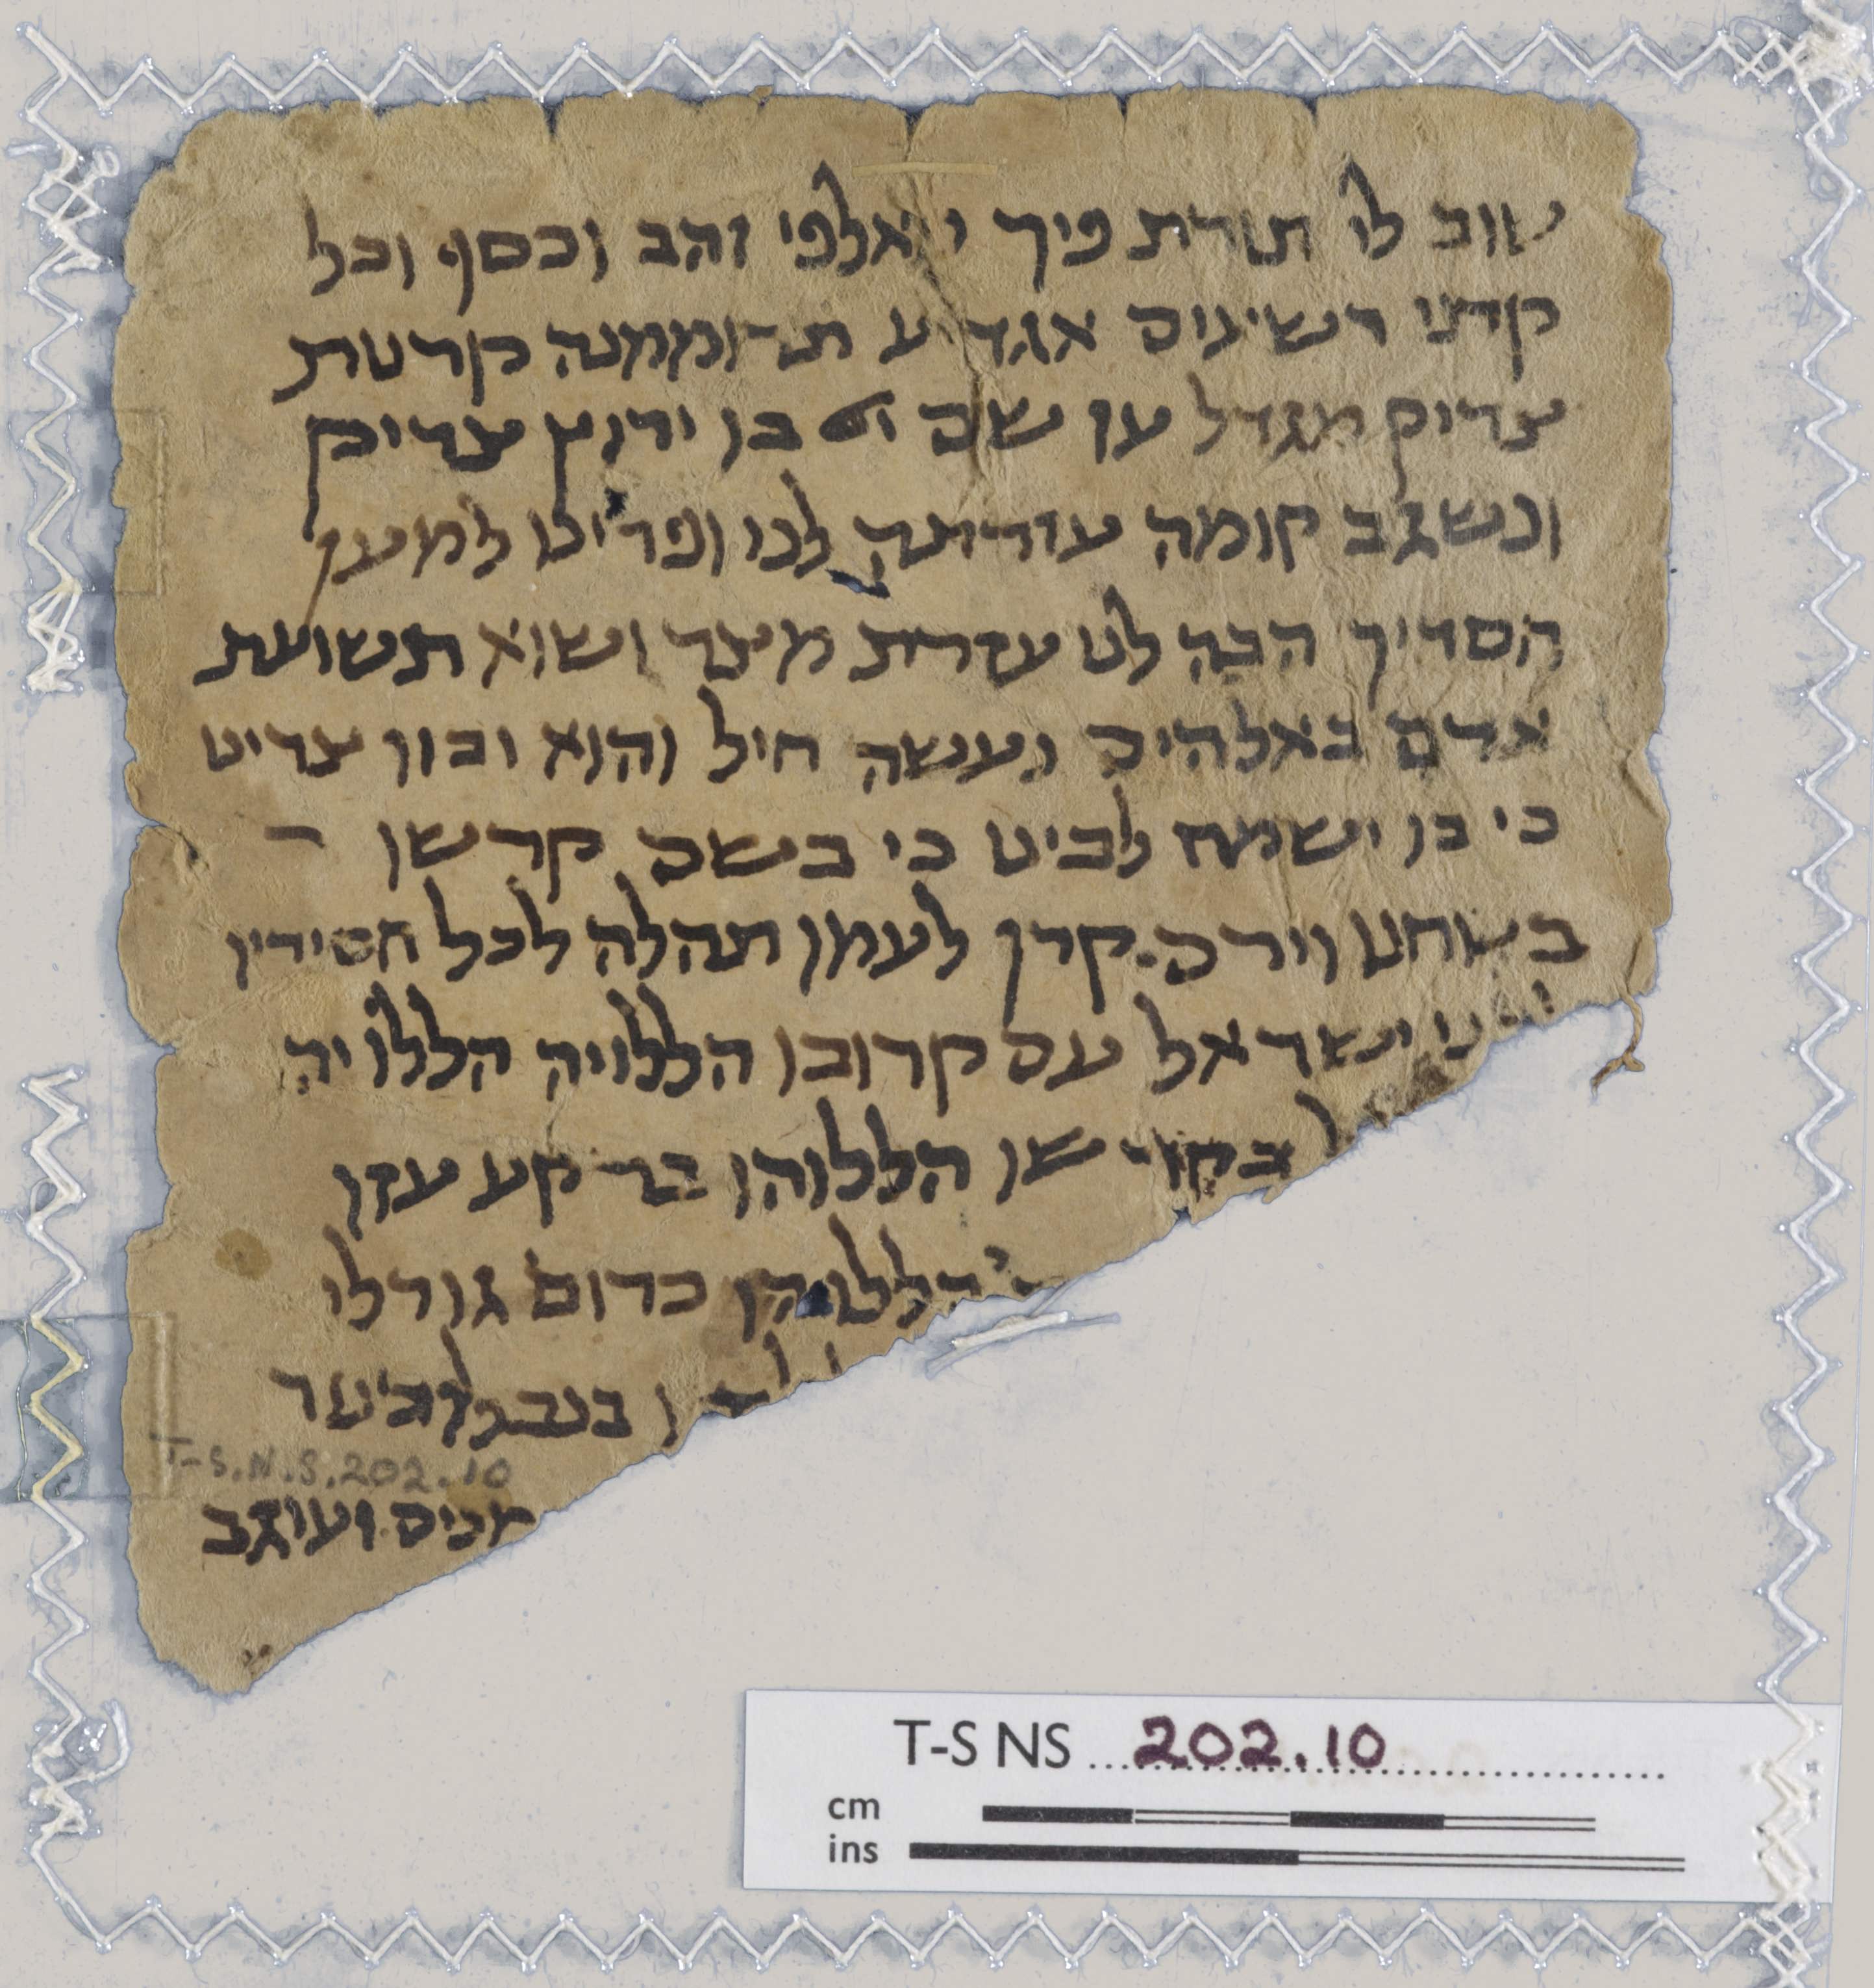 טוב לי תורת פיך מאלפי זהב וכסף וכל
קרני רשעים אגדע תרוממנה קרנות
צדיק מגדל עז שם בו ירוץ צדיק
ונשגב קומה עזרתה לנו ופדינו למען
חסדיך הבה לנו עזרת מצר ושוא תשועת
אדם באלהים נעשה חיל והוא יבוז צרינו
כי בו ישמח לבינו כי בשם קדשו
בטחנו וירם קרן לעמו תהלה לכל חסידיו
ישראל עם קרובו הללויה הללו יה
הללוהו ברקיע עזו
הללוהו כרוב גודלו
בנבל
מנים ועוגב
T-S.N.S.202.10
T-S NS 202.10
cm
ins